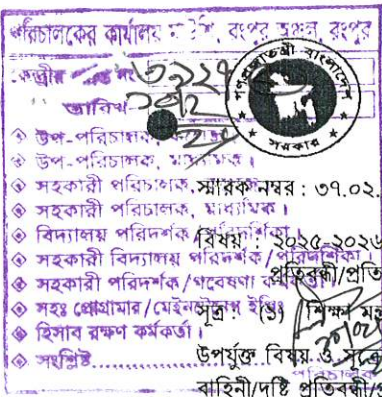 পরিচালকের কার্যালয় মাউশি, রংপুর অঞ্চল, রংপুর
তারিখ
গণপ্রজাতন্ত্রী বাংলাদেশ
সরকার
উপ-পরিচালক
উপ-পরিচালক, মাধ্যমিক।
সহকারী পরিচালক,
স্মারক নম্বর : ৩৭.০২.
সহকারী পরিচালক, মাধ্যমিক।
বিদ্যালয় পরিদর্শক
বিষয় : ২০২৫-২০২৬
সহকারী বিদ্যালয় পরিদর্শক/পরিদর্শিকা।
প্রতিবন্ধী/প্রতি
সহকারী পরিদর্শক/গবেষণা কর্মকর্তা।
সহঃ প্রোগ্রামার/মেইনটেনেন্স ইঞ্জিঃ
সূত্র : (১) শিক্ষা
হিসাব রক্ষণ কর্মকর্তা।
সংশ্লিষ্ট
উপর্যুক্ত বিষয় ও সূত্রে
পরিচালক
বাহিনী/দৃষ্টি প্রতিবন্ধী/